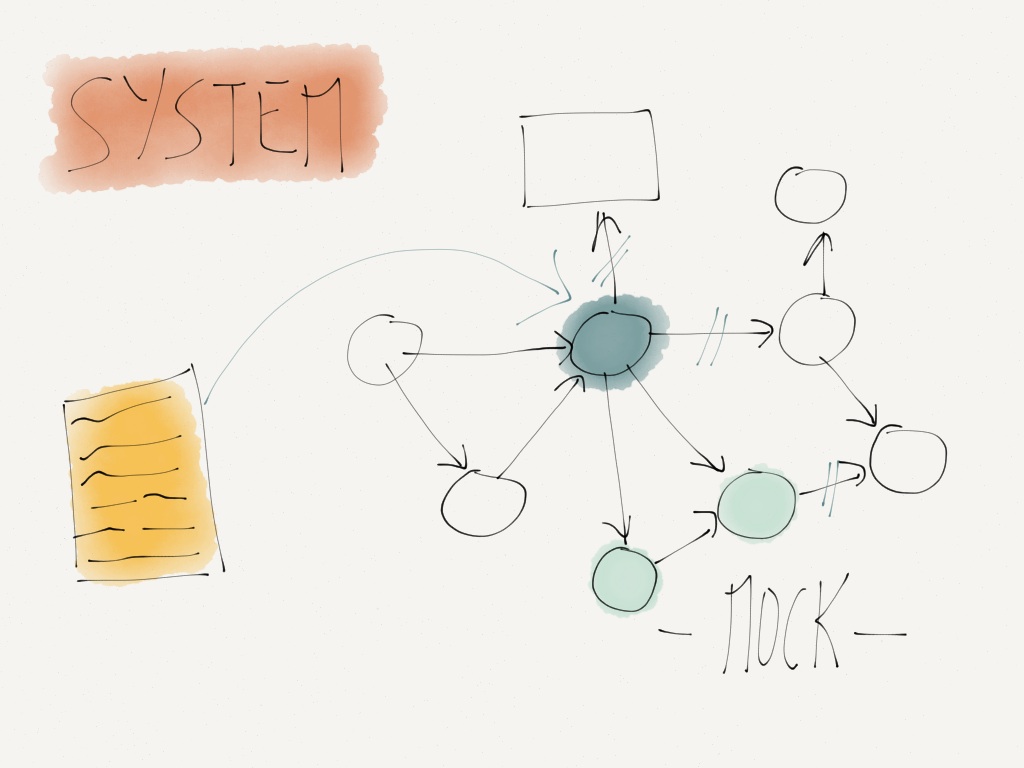 SYSTEM
- MOCK -